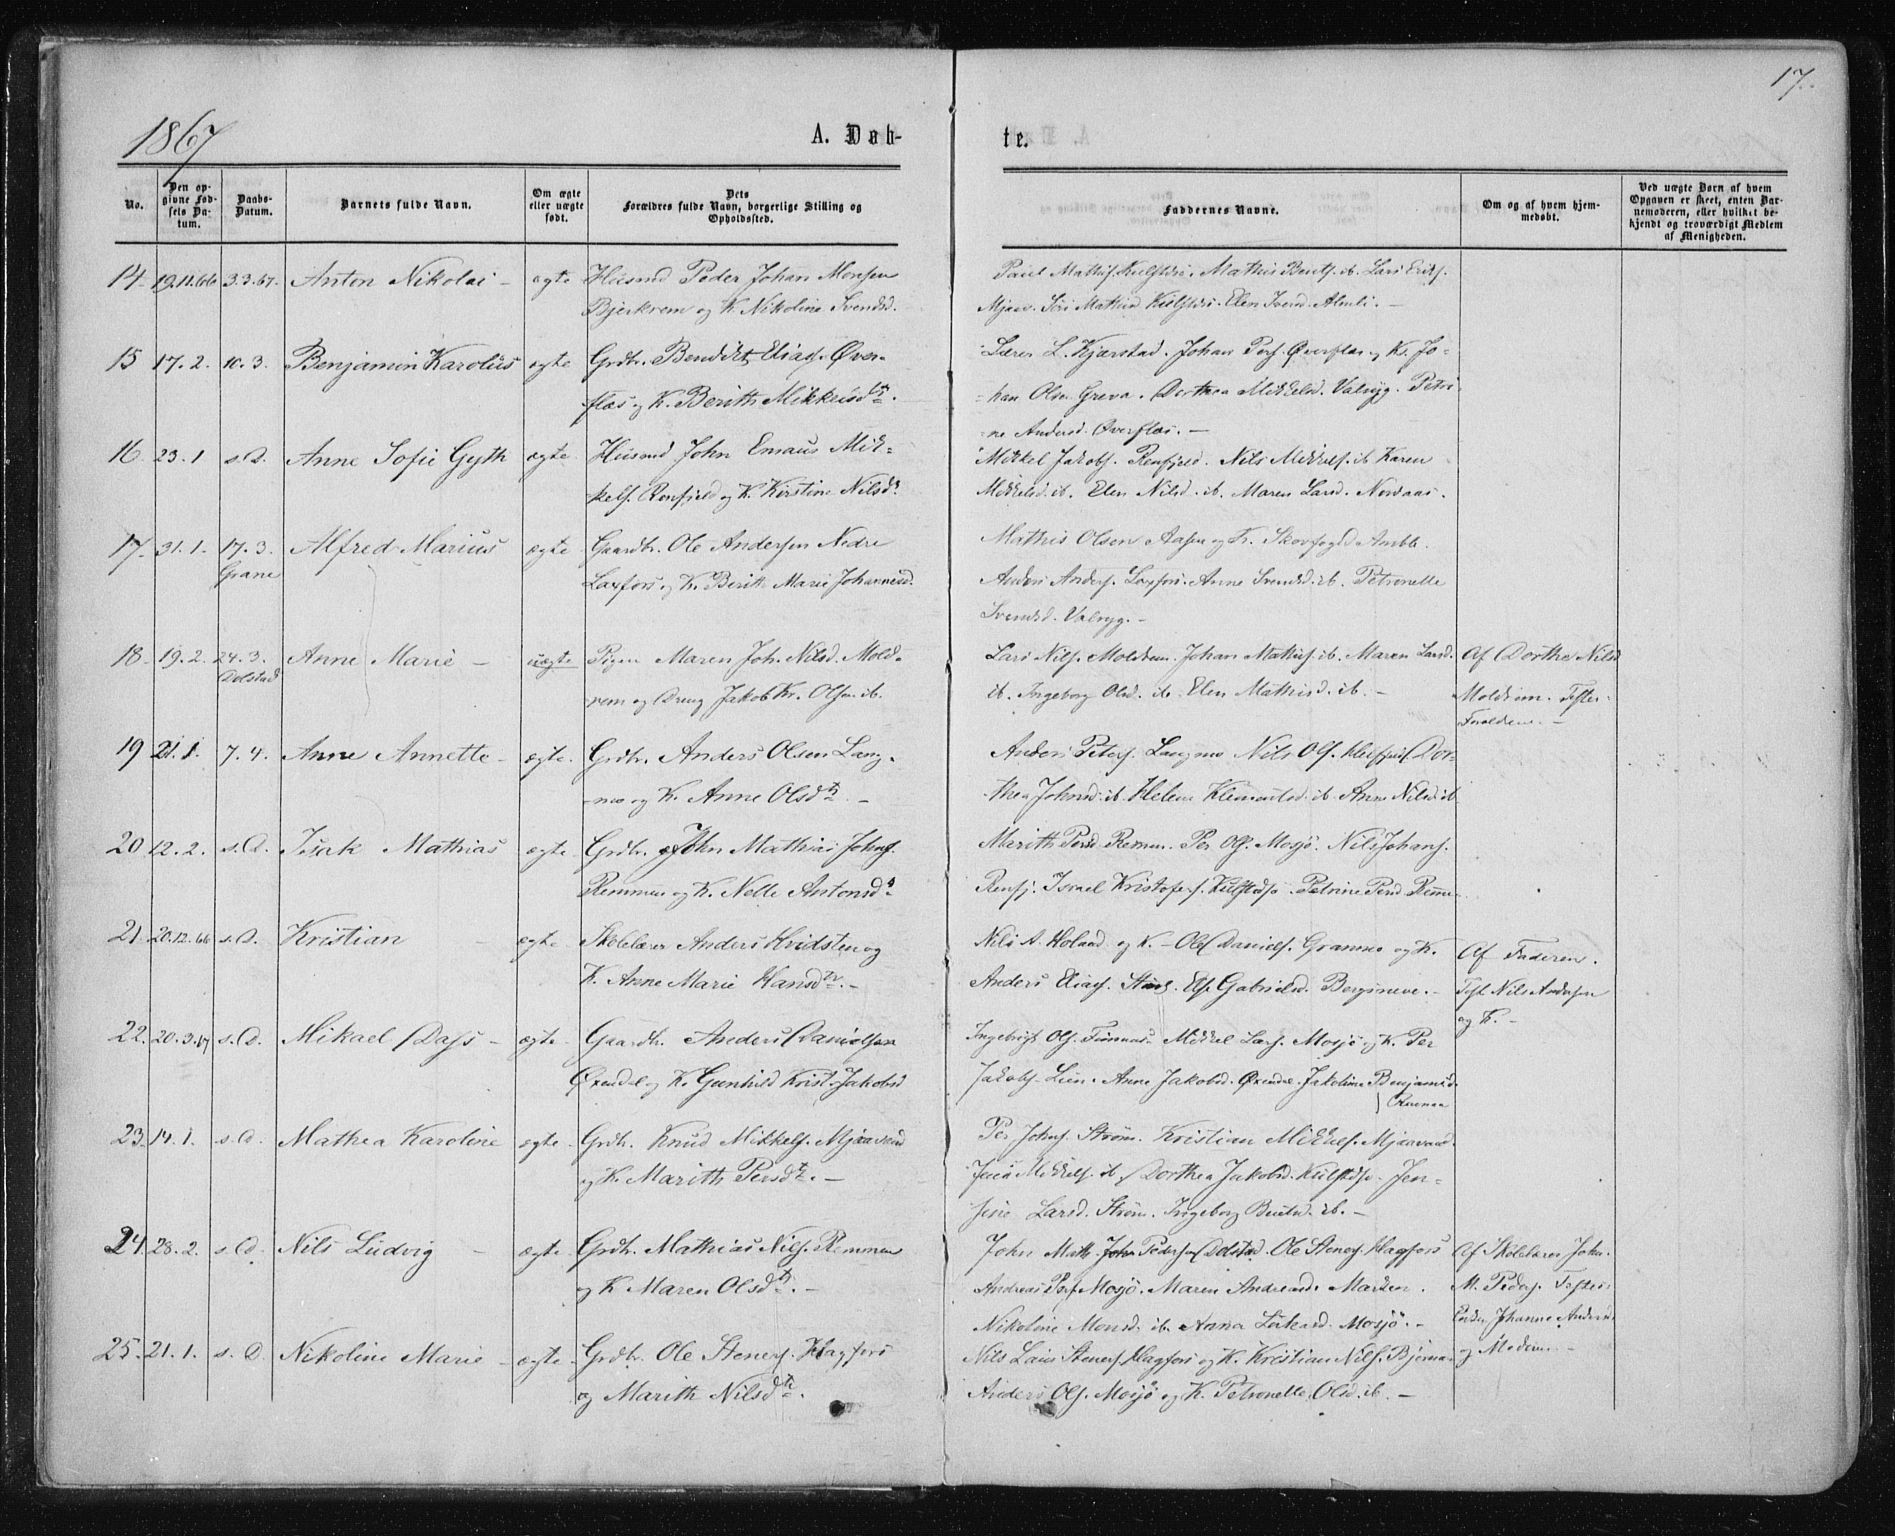 17.
1867
A. Døb-
te.
No.
Den op-
givne Fød-
sels Da-
tum.
Daabs-
Datum.
Barnets fulde Navn.
Om ægte
eller uægte
født.
Dets
Forældres fulde Navn, borgerlige Stilling og
Opholdssted.
Faddernes Navne.
Om og af hvem hjem-
medøbt.
Ved uægte Børn af hvem
Opgaven er skeet, enten Bar-
nemoderen, eller hvilket be-
kjendt og troværdigt Medlem
af Menigheden.
14 19.11.66 3.3.67. Anton Nikolai - ægte Husmd Peder Johan Monsen
Bjerkrem og K. Nikoline Svendsd.
Paul Mathis. Kulstadsi. Mathis Bents. ib. Lars Eriks.
Mjaav. Siri Mathisd Kulstadsi. Elen Iversd. Almli. -
15 17.2. 10.3. Benjamin Karolus ægte Grdbr. Bendikt Elias. Øver-
flæs og K. Berith Mikkelsdtr.
Lærer L. Kjærstad. Johan Pers. Øverflæs og K. Jo-
han Olsen Greva. Dorthea Mikkelsd. Valryg. Petri
ne Andersd. Øverflæs. -
16. 23.1 s.D. Anne Sofie Gyth ægte Husmd John Emaus Mik-
kels. Renfjeld og K. Kirstine Nilsd.
Mikkel Jakobs. Renfjeld. Nils Mikkels. ib Karen
Mikkelsd. ib. Elen Nilsd. ib. Maren Larsd. Nordaas.
17. 31.1. 17.3. Grane Alfred Marius ægte Gaardbr. Ole Andersen Nedre
Laxfors og K. Berith Marie Johannesd.
Mathis Olsen Aasen og K. Skovfoged
Anders Anders. Laxfors. Anne Svendsd. ib. Petronelle
Svendsd. Valryg. -
18. 19.2. 24.3. Dolstad Anne Marie - uægte Pigen Maren Joh. Nilsd. Mold-
rem og Dreng Jakob Kr. Olsen ib.
Lars Nils. Moldrem. Johan Mathis. ib. Maren Larsd.
ib. Ingeborg Olsd. ib. Elen Mathisd. ib. -
Af Dorthe Nilsd
Moldrem. Test.
Forældrene. -
19 21.1. 7.4. Anne Annette - ægte. Grdbr. Anders Olsen Lang-
mo og K. Anne Olsdtr. -
Anders Peters. Langmo Nils Ols. Dor-
thea Johnsd. ib. Helene Klemetsd. ib. Anne Nilsd. ib
20 12.2. s.D. Isak Mathias ægte Grdbr. John Mathias Johns.
Remmen og K. Nelle Antonsd.
Marith Persd Remmen. Per Ols. Mosjø. Nils Johans.
Renfj. Israel Kristofers. Kulstadsjø. Petrine Persd Remme
21. 20.12.66 s.D. Kristian - ægte. Skolelærer Anders Hvidsten og
K. Anne Marie Hansdtr. -
Nils A. Holand og K. - Ole Daniels. Granmo og K.
Anders Elias. Stein. Else Gabrielsd. Bergsneve. -
Af Faderen.
Test. Nils Andersen
og K. -
22. 20.3.67 s.D. Mikael Dass - ægte. Gaardbr. Anders Danielsen
Øxendal og K. Gunhild Krist. Jakobsd
Ingebrigt Ols. Mikkel Lars. Mosjø og K. Per
Jakobs. Lien. Anne Jakobsd. Øxendal. Jakobine Benjaminsd.
23. 14.1. s.D. Mathea Karoline ægte. Grdbr. Knud Mikkels. Mjaavand
og K. Marith Persdtr. -
Per Johns. Strøm. Kristian Mikkels. Mjaavand.
Jens Mikkels. ib. Dorthea Jakobsd. Kulstadsjø. Jen-
sine Larsd. Strøm. Ingeborg Bentsd. ib. -
24. 28.2. s.D. Nils Ludvig - ægte. Grdbr. Mathias Nils. Remmen
og K. Maren Olsdtr. -
John Math. Pedersen Dolstad. Ole Steners. Hagfors
Andreas Pers. Mosjø. Maren Andreasd. Marken.
Nikoline Monsd. ib. Anna Mosjø. -
Af Skolelærer John
M. Peders. Test.
Enken Johanne Andersd.
og Moderen. -
25. 21.1. s.D. Nikoline Marie - ægte. Grdbr. Ole Steners. Hagfors
og Marith Nilsdtr.
Nils Lars Steners. Hagfors og K. Kristian Nils. Bjørnaa
Anders Ols. Mosjø og K. Petronelle Olsd. ib. -